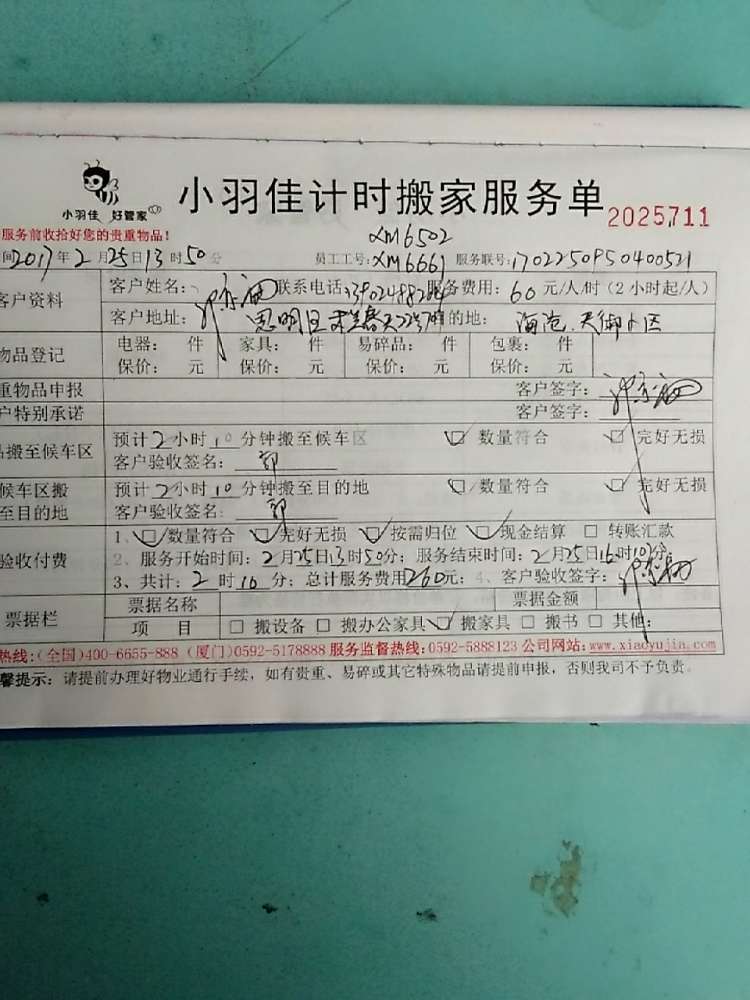 小羽佳 好管家
小羽佳计时搬家服务单 2025711
服务前收拾好您的贵重物品!
XM6502
间2017年2月25日13时50分 员工工号:XM6661 服务联号:1702250950400521
客户资料 客户姓名: 联系电话: 服务费用:60元/人/时(2小时起/人)
客户地址:思明区 目的地:海沧.天御小区
物品登记 电器: 件 家具: 件 易碎品: 件 包裹: 件
保价: 元 保价: 元 保价: 元 保价: 元
重物品申报 客户签字:
户特别承诺 客户签字:
品搬至候车区 预计2小时10分钟搬至候车区 ☑数量符合 ☑完好无损
客户验收签名:郭
候车区搬 预计2小时10分钟搬至目的地 ☑数量符合 ☑完好无损
至目的地 客户验收签名:郭
1、☑数量符合 ☑完好无损 ☑按需归位 ☑现金结算 □转账汇款
验收付费 2、服务开始时间:2月25日13时50分;服务结束时间:2月25日16时10分;
3、共计:2时10分;总计服务费用260元;4、客户验收签字:
票据栏 票据名称 票据金额
项 目 □搬设备 □搬办公家具 ☑搬家具 □搬书 □其他:
热线:(全国)400-6655-888 (厦门)0592-5178888 服务监督热线:0592-5888123 公司网站:www.xiaoyujia.com
馨提示:请提前办理好物业通行手续,如有贵重、易碎或其它特殊物品请提前申报,否则我司不予负责。